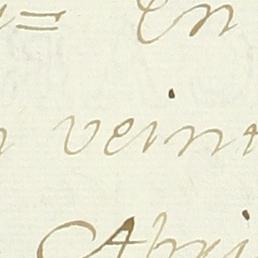 = En
veint
Abri